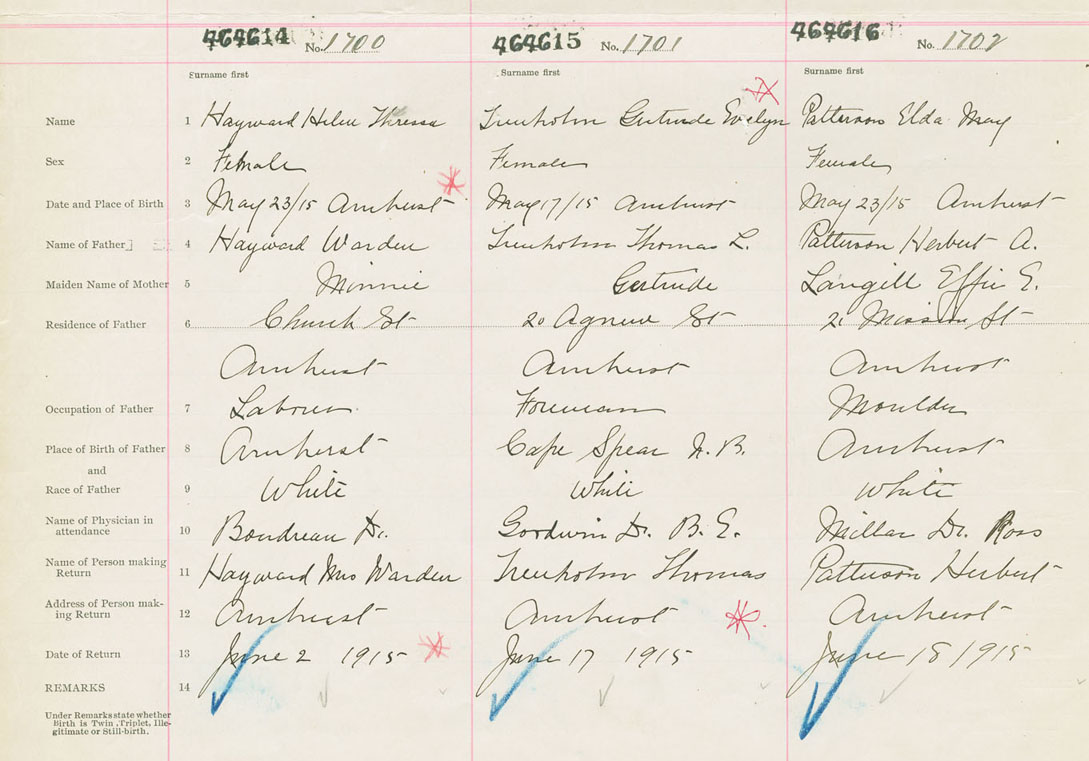 464614 No. 1700 464615 No. 1701 464616 No. 1702
Surname first Surname first Surname first
Name 1 Hayward Helen Theressa Trenholm Gertrude Evelyn Patterson Elda May
Sex 2 Female Female Female
Date and Place of Birth 3 May 23/15 Amherst May 17/15 Amherst May 23/15 Amherst
Name of Father 4 Hayward Warden Trenholm Thomas L. Patterson Herbert A.
Maiden Name of Mother 5 Minnie Gertrude Langill Effie E.
Residence of Father 6 Church St 20 Agnew St 21 Mission St
Amherst Amherst Amherst
Occupation of Father 7 Laborer Foreman Moulder
Place of Birth of Father 8 Amherst Cape Spear N. B. Amherst
and
Race of Father 9 White White White
Name of Physician in
attendance 10 Boudreau Dr. Goodwin Dr. B. E. Millar Dr. Ross
Name of Person making
Return 11 Hayward Mrs Warden Trenholm Thomas Patterson Herbert
Address of Person mak-
ing Return 12 Amherst Amherst Amherst
Date of Return 13 June 2 1915 June 17 1915 June 18 1915
REMARKS 14
Under Remarks state whether
Birth is Twin, Triplet, Ille-
gitimate or Still-birth.